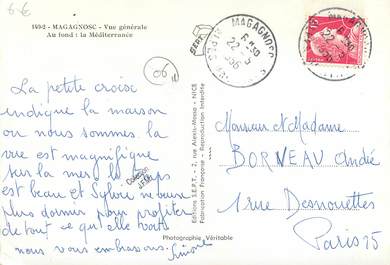 6€
149-2 - MAGAGNOSC - Vue générale
Au fond : la Méditerranée
SEPT
MAGAGNOSC
22
06
La petite croise
indique la maison
ou nous sommes la
vue est magnifique
sur la mer le temps
est beau et Sylvie ne veut
plus dormir pour profiter
de tout ce qu'elle voit
nous vous embrassons.
Simone
Collection
Photographie Véritable
Editions S.E.P.T. - 2, rue Alexis-Mossa - NICE
Fabrication Française - Reproduction Interdite
Monsieur et Madame
BORNEAU André
1 rue Desnouettes
Paris 15